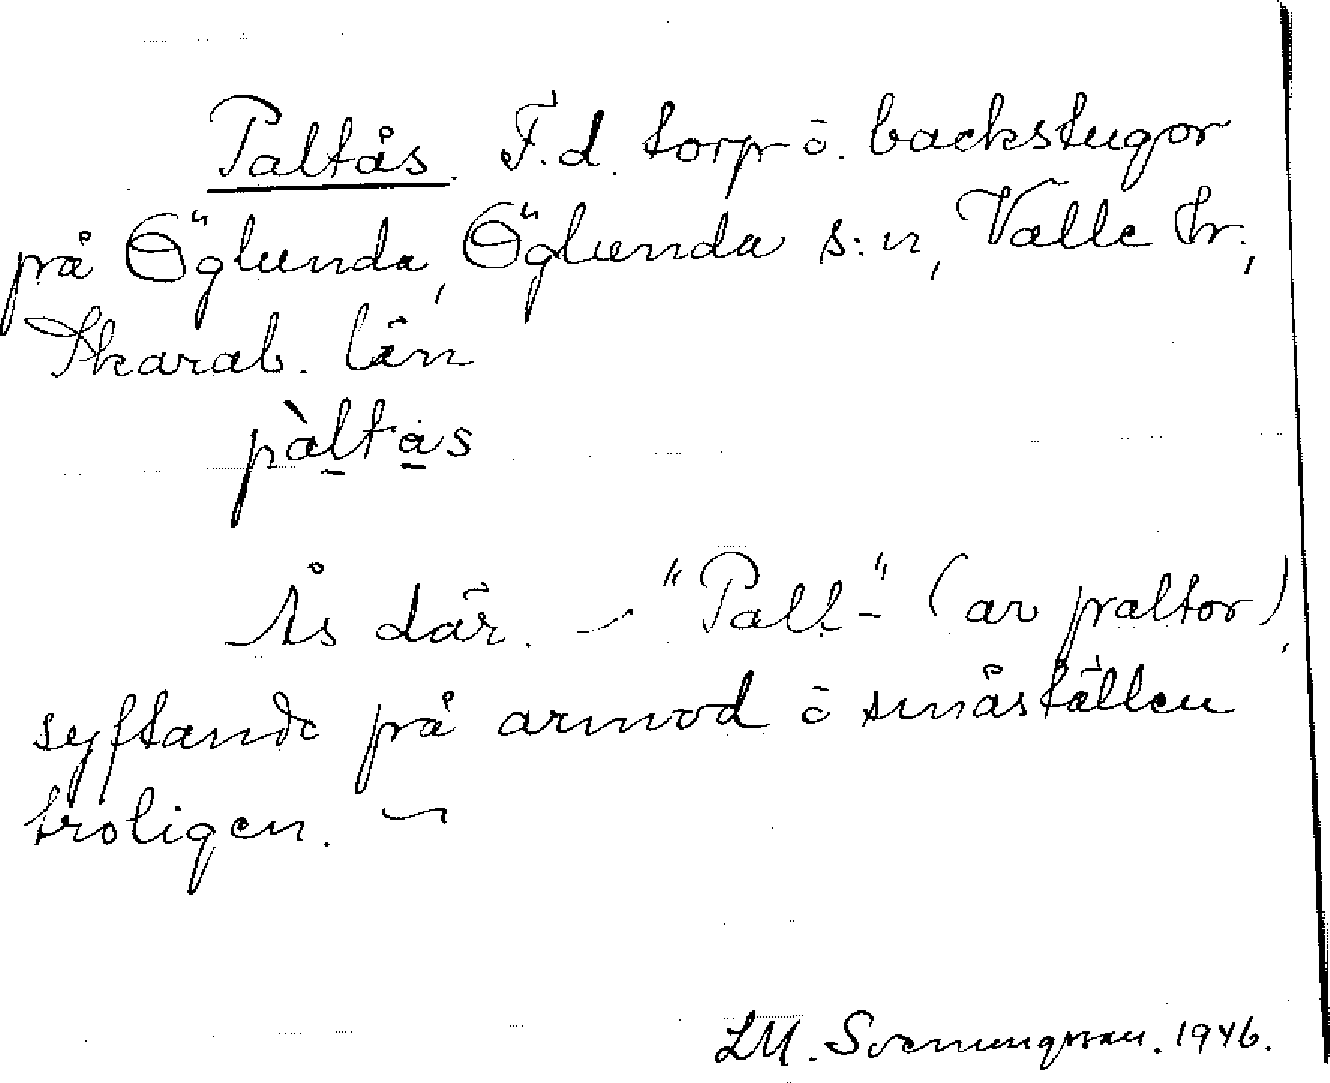 Paltås. F.d. torp o. backstugor
på Öglunda, Öglunda s:n, Valle hr.,
Skarab. län
pàltås
Ås där. — "Palt-" (av paltor)
syftande på armod o småställen
troligen. —
LM. Svenungsson. 1946.